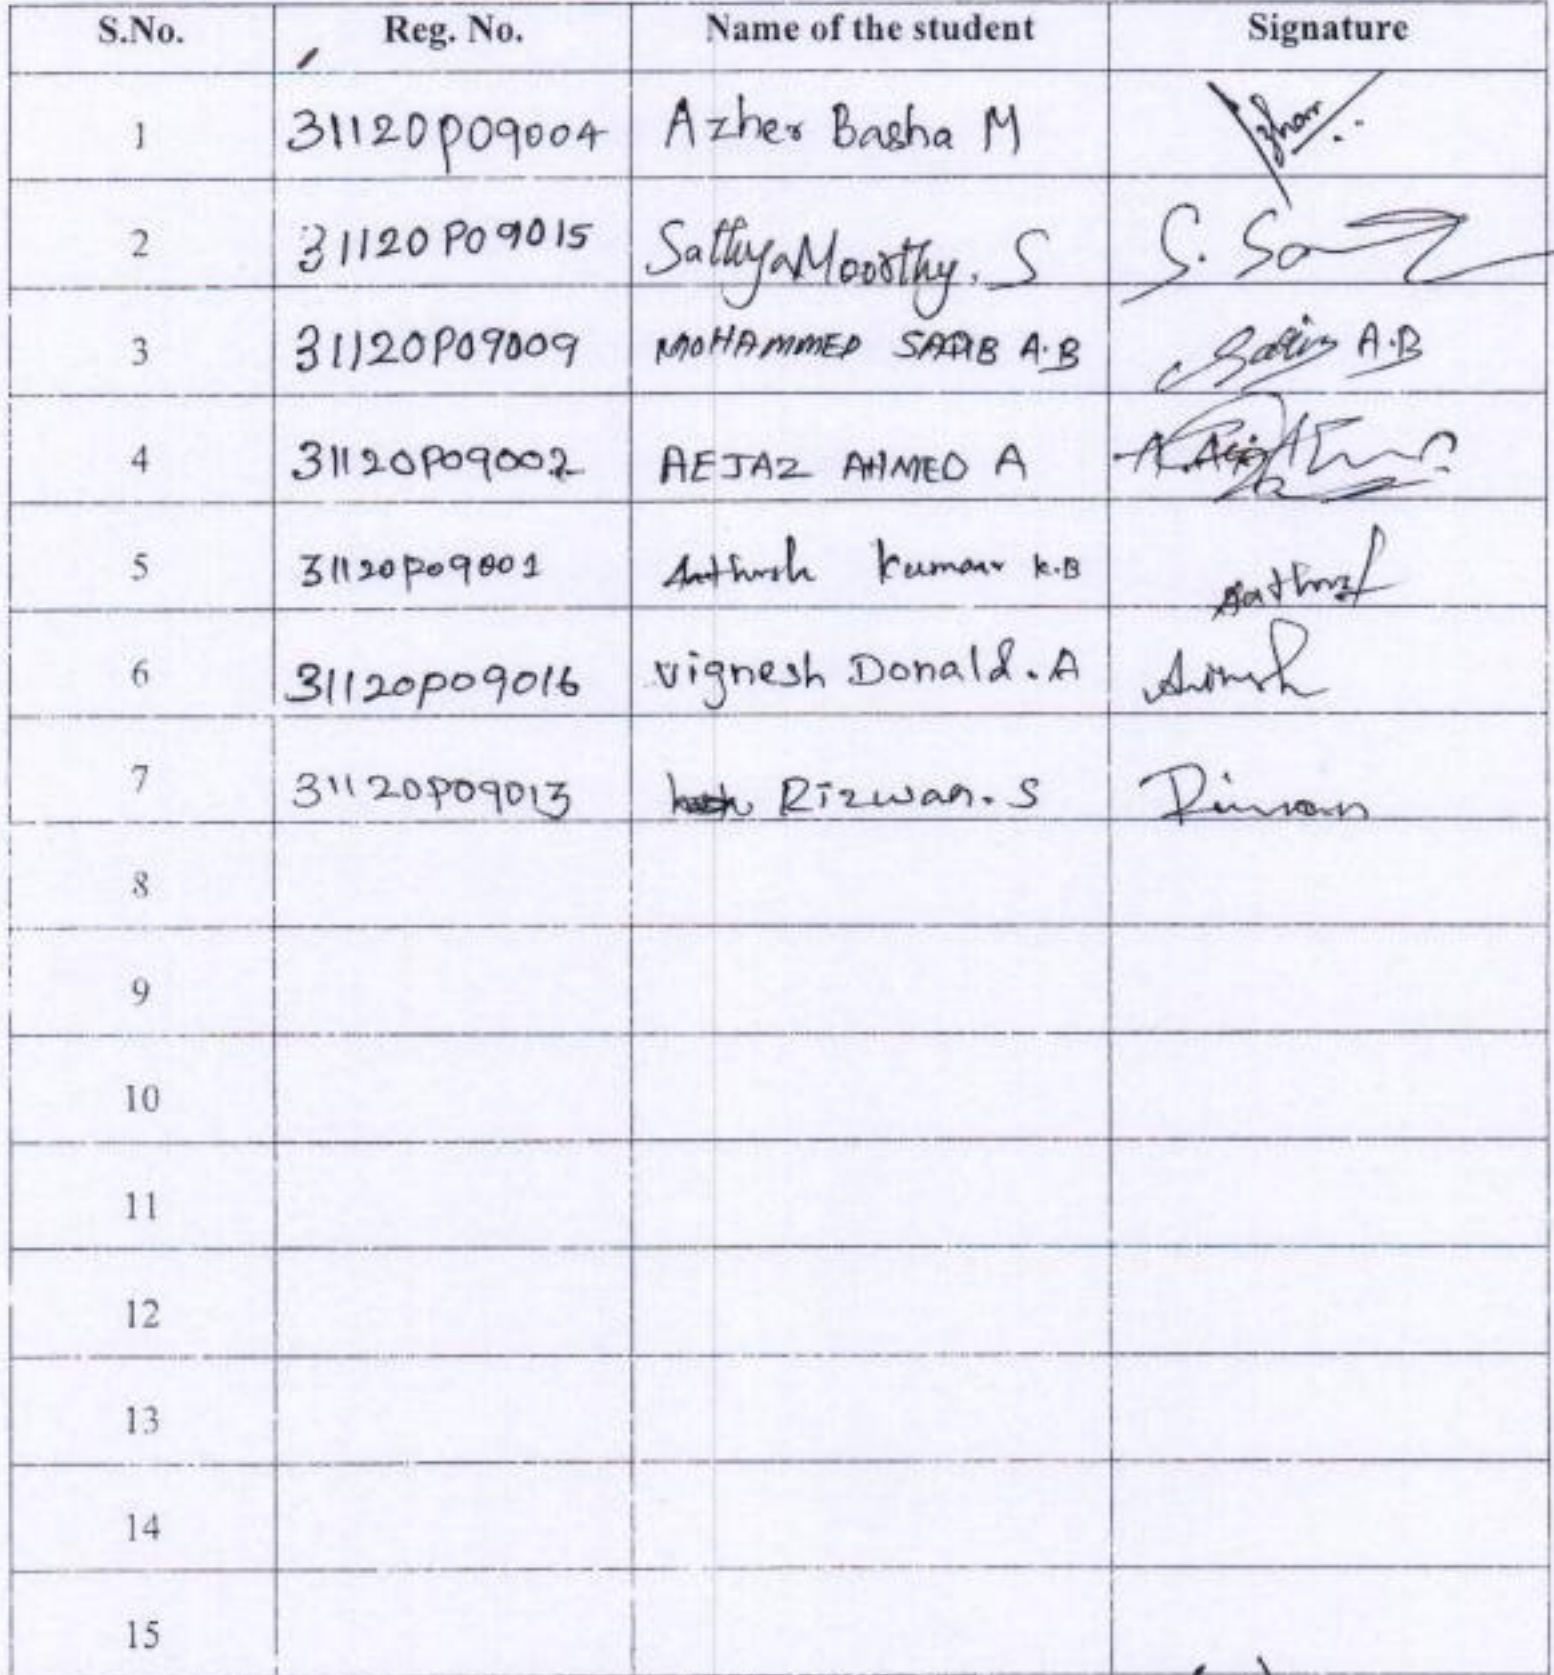 S.No. Reg. No. Name of the student Signature
1 31120P09004 Azher Basha M Azhar
2 31120P09015 SathyaMoorthy. S S. Sa
3 31120P09009 MOHAMMED SAQIB A.B Saqib A.B
4 31120P09002 AEJAZ AHMED A
5 31120P09001 kumar K.B
6 31120P09016 Vignesh Donald. A
7 31120P09013 Rizwan. S Rizwan
8
9
10
11
12
13
14
15